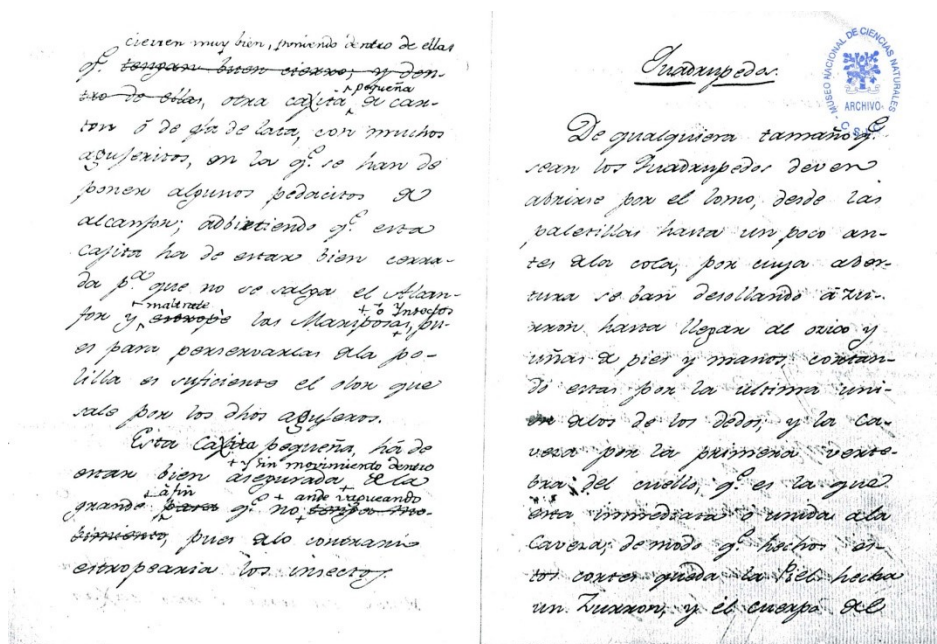 cierren muy bien, poniendo dentro de ellas
qᵉ. tengan buen cierro; y den-
tro de ellas, otra caxita pequeña de car-
ton ó de oja de lata, con muchos
agujeritos, en la qᵉ. se han de
poner algunos pedacitos de
alcanfor; adbirtiendo qᵉ. esta
cajita ha de estar bien cerra-
da pᵃ. que no se salga el Alcan-
+ maltrate + ó Ynsectos
for y estrope las Mariposas, pu-
es para perservarlas dela po-
lilla es suficiente el olor que
sale por los dhos agujeros.
Esta Caxita pequeña, há de
+ y sin movimiento dentro
estar bien asegurada dela
+ áfin + ande vapueando
grande para qᵉ. no tenga mo-
bimiento, pues delo contrario
estropearia los insectos.
Quadrupedos.
De qualquiera tamaño qᵉ.
sean los Quadrupedos deven
abrirse por el lomo, desde las
paletillas hasta un poco an-
tes dela cola, por cuya aber-
tura se ban desollando á zu-
rron hasta llegar al ocico y
uñas de pies y manos, cortan-
do estas por la ultima uni-
on delos de los dedos, y la ca-
veza por la primera verte-
bra del cuello, qᵉ. es la que
esta inmediata ó unida ala
Caveza; de modo qᵉ. hechos es-
tos cortes queda la Piel hecha
un Zurron, y el cuerpo del
MUSEO NACIONAL DE CIENCIAS NATURALES
ARCHIVO
C.S.I.C.